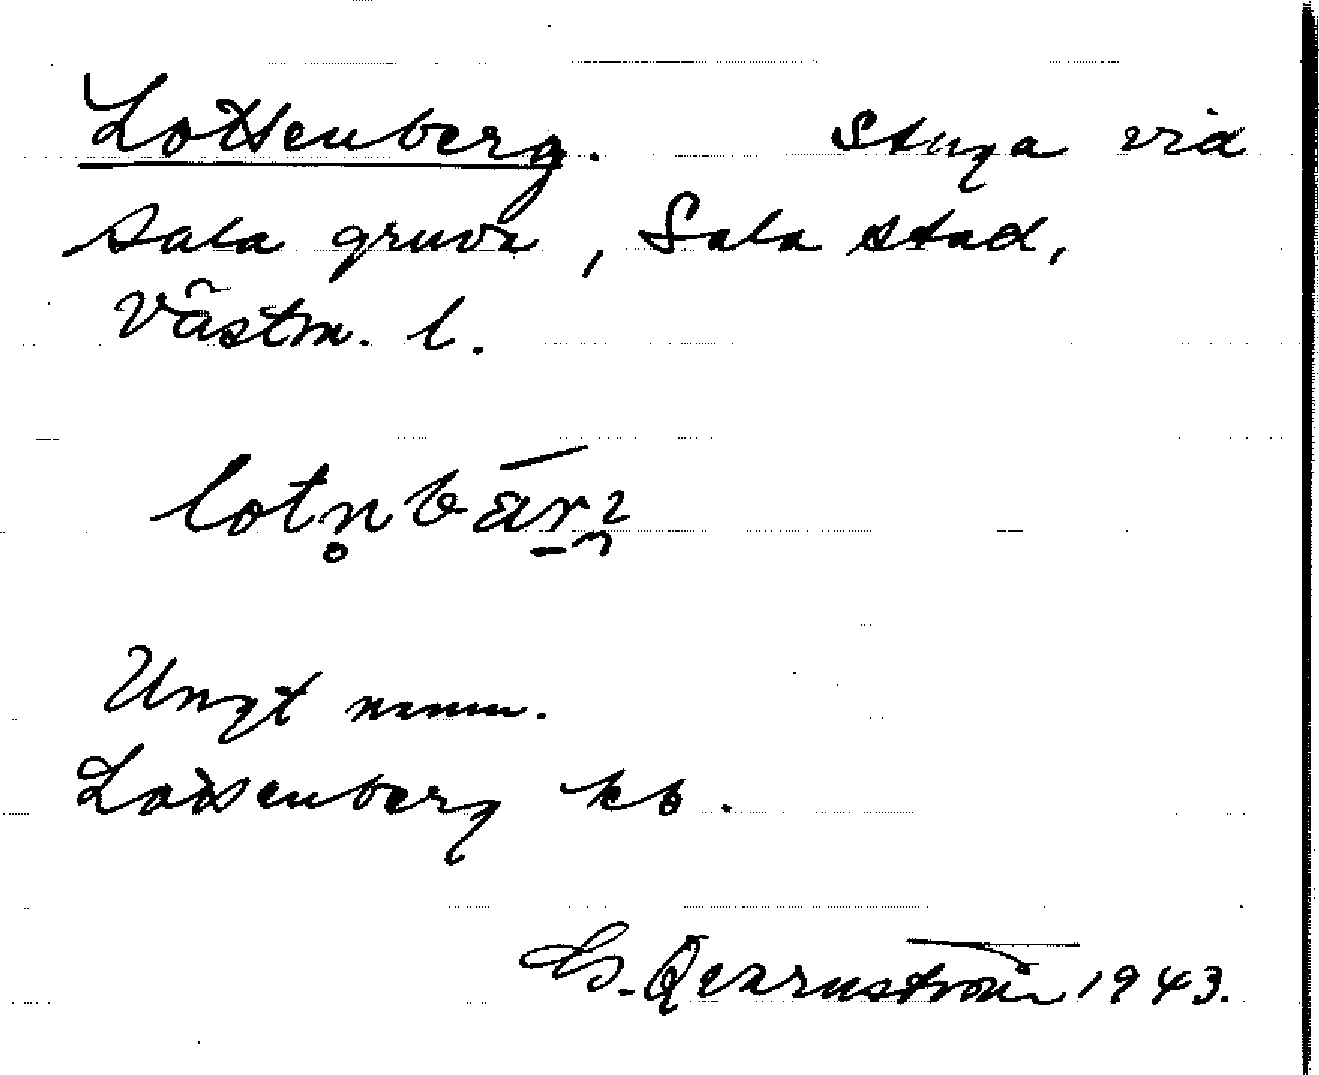 Lottenberg. Stuga vid
Sala gruva, Sala stad,
Västm. l.
lotn̥bär̠ʒ
Ungt namn.
Lottenberg kb.
G. Qvarnström 1943.